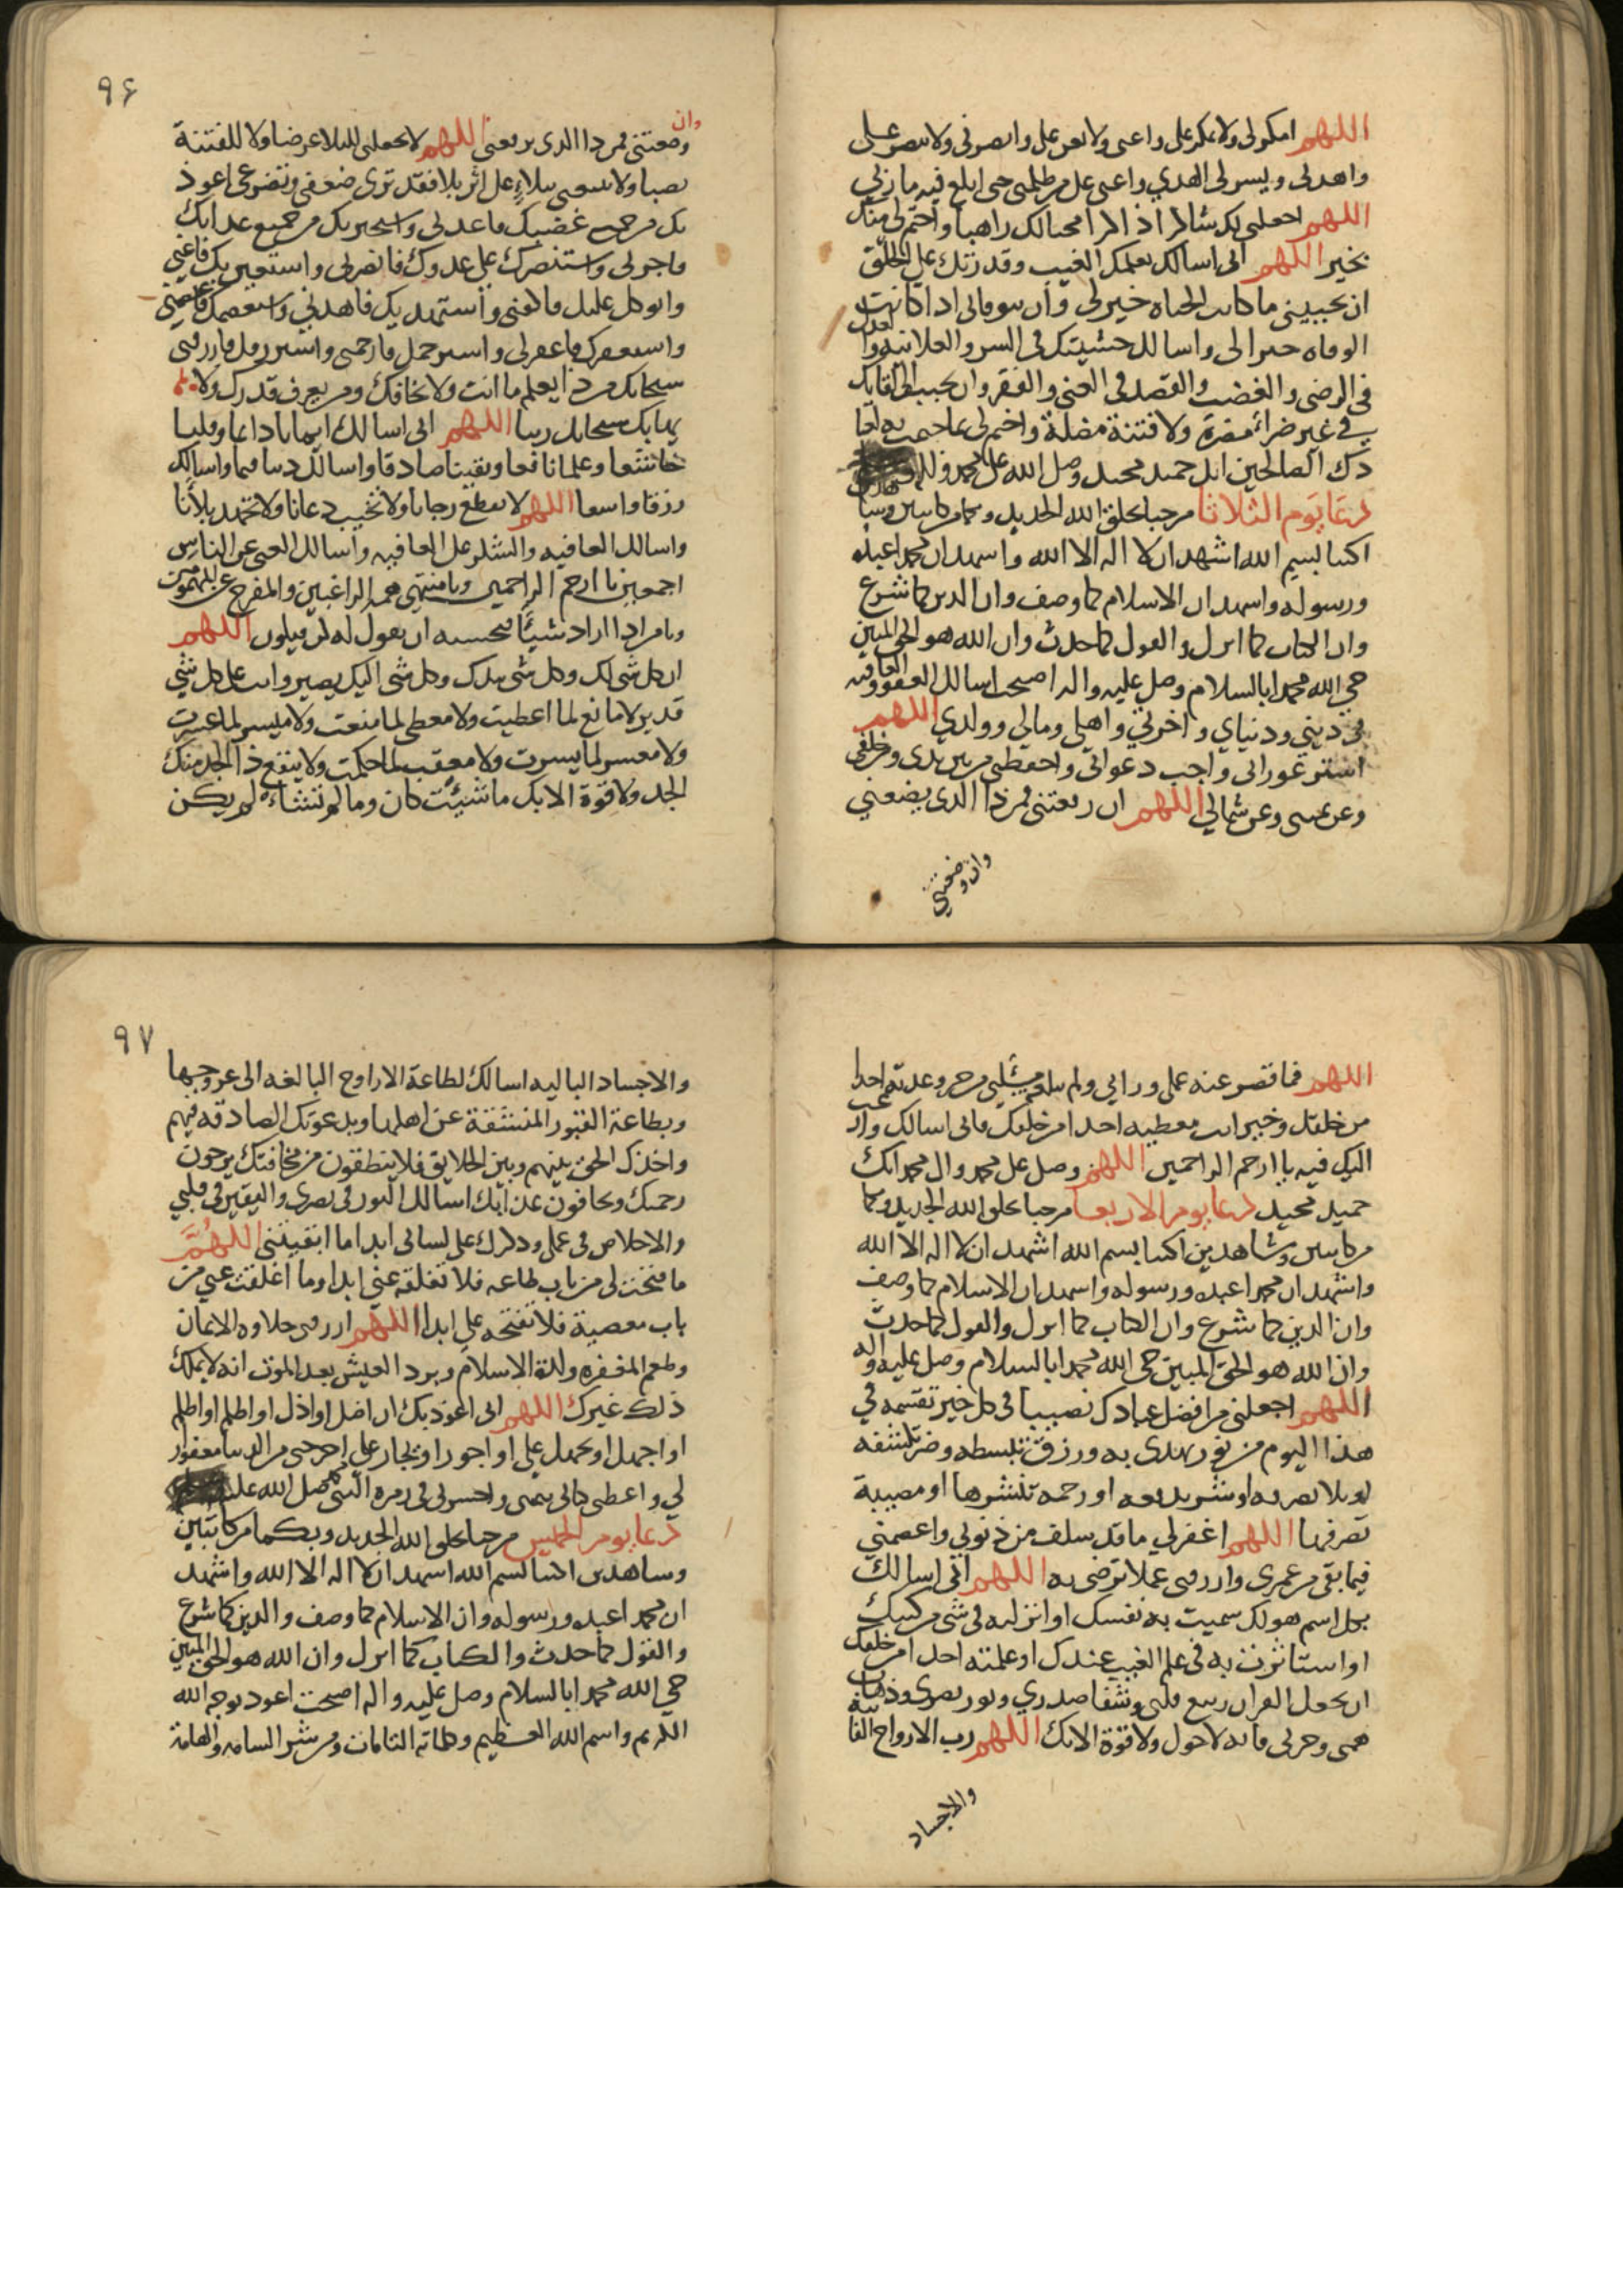 اللهم امكر لي ولا تمكر علي واعني ولا تعن علي وانصرني ولا تنصر علي
واهدني ويسر لي الهدي واعني على من ظلمني حتى ابلغ فيه مأربي
اللهم اجعلني لك شاكرا ذاكرا محبا لك راهبا واختم لي منك
بخير اللهم اني اسالك بعلمك الغيب وقدرتك على الخلق
ان تحييني ما كانت الحياة خيرا لي وان تتوفاني اذا كانت
الوفاه خيرا لي واسالك خشيتك في السر والعلانيه والعدل
في الرضى والغضب والقصد في الغنى والفقر وان تحبب الي لقايك
في غير ضراء مضرة ولا فتنة مضلة واختم لي بما ختمت به لعبا
دك الصالحين انك حميد مجيد وصل الله على محمد واله
دعا يوم الثلاثا مرحبا بخلق الله الجديد وبكما من كاتبين وشاهدين
اكتبا بسم الله اشهد ان لا اله الا الله واشهد ان محمدا عبده
ورسوله واشهد ان الاسلام كما وصف وان الدين كما شرع
وان الكتاب كما انزل والقول كما حدث وان الله هو الحق المبين
حيى الله محمدا بالسلام وصل عليه واله اصبحت اسالك العفو والعافيه
في ديني ودنياي واخرتي واهلي ومالي وولدي اللهم
استر عوراتي واجب دعواتي واحفظني من بين يدي ومن خلفي
وعن يميني وعن شمالي اللهم ان رفعتني فمن ذا الذي يضعني
وان وضعتني
٩۶
وان
وضعتني فمن ذا الذي يرفعني اللهم لا تجعلني للبلاء عرضا ولا للفتنة
نصبا ولا تتبعني ببلاءٍ على اثر بلا فقد ترى ضعفي وتضرعي اعوذ
بك من جميع غضبك فاعذني واستجير بك من جميع عذابك
فاجرني واستنصرك على عدوك فانصرني واستعين بك فاعني
واتوكل عليك فاكفني واستهديك فاهدني واستعصمك فاعصمني
واستغفرك فاغفر لي واسترحمك فارحمني واسترزقك فارزقني
سبحانك من ذا يعلم ما انت ولا يخافك ومن يعرف قدرتك ولا
يهابك سبحانك ربنا اللهم اني اسالك ايمانا دايما وقلبا
خاشعا وعلما نافعا ويقينا صادقا واسالك دينا قيما واسالك
رزقا واسعا اللهم لا تقطع رجانا ولا تخيب دعانا ولا تجهد بلأنا
واسالك العافيه والشكر على العافيه واسالك الغنى عن الناس
اجمعين يا ارحم الراحمين ويا منتهى همه الراغبين والمفرج عن المهمومين
ويا من اذا اراد شيئًا فحسبه ان يقول له كن فيكون اللهم
ان كل شي لك وكل شي بيدك وكل شى اليك يصير وانت على كل شيٍ
قدير لا مانع لما اعطيت ولا معطي لما منعت ولا ميسر لما عسرت
ولا معسر لما يسرت ولا معقب لما حكمت ولا ينفع ذا الجد منك
الجد ولا قوة الا بك ما شيئت كان وما لم تشاء لم يكن
اللهم فما قصر عنه عملي ورايي ولم تبلغه مسئلتي من خير وعدته احدا
من خلقك وخير انت معطيه احدا من خلقك فاني اسالك وارغب
اليك فيه يا ارحم الراحمين اللهم وصل على محمد وال محمد انك
حميد مجيد دعا يوم الاربعا مرحبا بخلق الله الجديد وبكما
من كاتبين وشاهدين اكتبا بسم الله اشهد ان لا اله الا الله
واشهد ان محمدا عبده ورسوله واشهد ان الاسلام كما وصف
وان الدين كما شرع وان الكتاب كما انزل والقول كما حدث
وان الله هو الحق المبين حيى الله محمدا بالسلام وصل عليه واله
اللهم اجعلني من افضل عبادك نصيبا في كل خير تقسمه في
هذا اليوم من نور تهدي به ورزق تبسطه وضر تكشفه
او بلا تصرفه او شر تدفعه او رحمه تنشرها او مصيبة
تصرفها اللهم اغفر لي ما قد سلف من ذنوبي واعصمني
فيما بقى من عمري وارزقني عملا ترضى به اللهم اني اسالك
بكل اسم هو لك سميت به نفسك او انزلته في شي من كتبك
او استاثرت به في علم الغيب عندك او علمته احدا من خلقك
ان تجعل القران ربيع قلبي وشفا صدري ونور بصري وذهاب
همي وحزني فانه لا حول ولا قوة الا بك اللهم رب الارواح الفانية
والاجساد
٩٧
والاجساد الباليه اسالك لطاعة الارواح البالغه الى عروجها
وبطاعة القبور المنشقة عن اهلها وبدعوتك الصادقه فيهم
واخذك الحق بينهم وبين الخلايق فلا ينطقون من مخافتك يرجون
رحمتك ويخافون عذابك اسالك النور في بصري واليقين في قلبي
والاخلاص في عملي وذكرك على لساني ابدا ما ابقيتني اللهُمَّ
ما فتحت لي من باب طاعه فلا تغلقه عني ابدا وما اغلقت عني من
باب معصية فلا تفتحه علي ابدا اللهم ارزقني حلاوه الايمان
وطعم المغفره ولذة الاسلام وبرد العيش بعد الموت انه لا يملك
ذلك غيرك اللهم اني اعوذ بك ان اضل او اذل او اظلم او اظلم
او اجهل او يجهل علي او اجور او يجار علي اخرجني من الدنيا مغفورا
لي واعطني كتابي بيميني واحشرني في زمره النبي محمد صل الله عليه
دعا يوم الخميس مرحبا بخلق الله الجديد وبكما من كاتبين
وشاهدين اكتبا بسم الله اشهد ان لا اله الا الله واشهد
ان محمدا عبده ورسوله وان الاسلام كما وصف والدين كما شرع
والقول كما حدث والكتاب كما انزل وان الله هو الحق المبين
حيى الله محمدا بالسلام وصل عليه واله اصبحت اعوذ بوجه الله
الكريم واسم الله العظيم وكلماته التامات ومن شر السامه والهامة